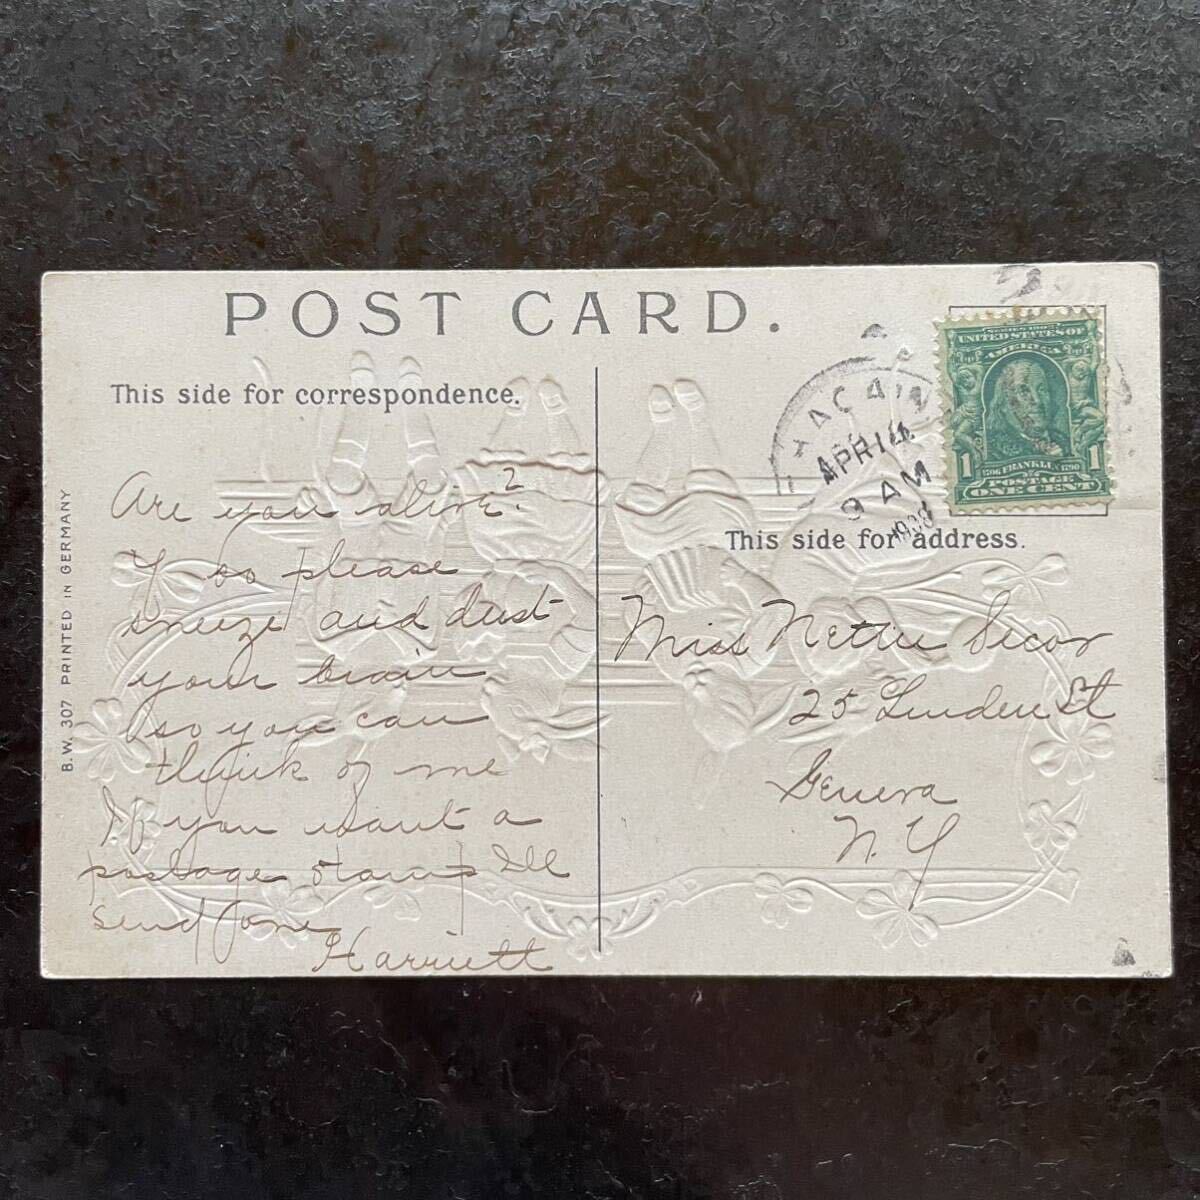 POST CARD.
This side for correspondence.
Are you alive?
If so please
sneeze and dust
your brain
so you can
think of me
If you want a
postage stamp Ill
send one
Harriett
B.W. 307 PRINTED IN GERMANY
APR 14
9 AM
1908
SERIES 1902
UNITED STATES OF
AMERICA
1 1706 FRANKLIN 1790 1
POSTAGE
ONE CENT
This side for address.
Miss Nettie Secor
25 Linden St
Geneva
N.Y